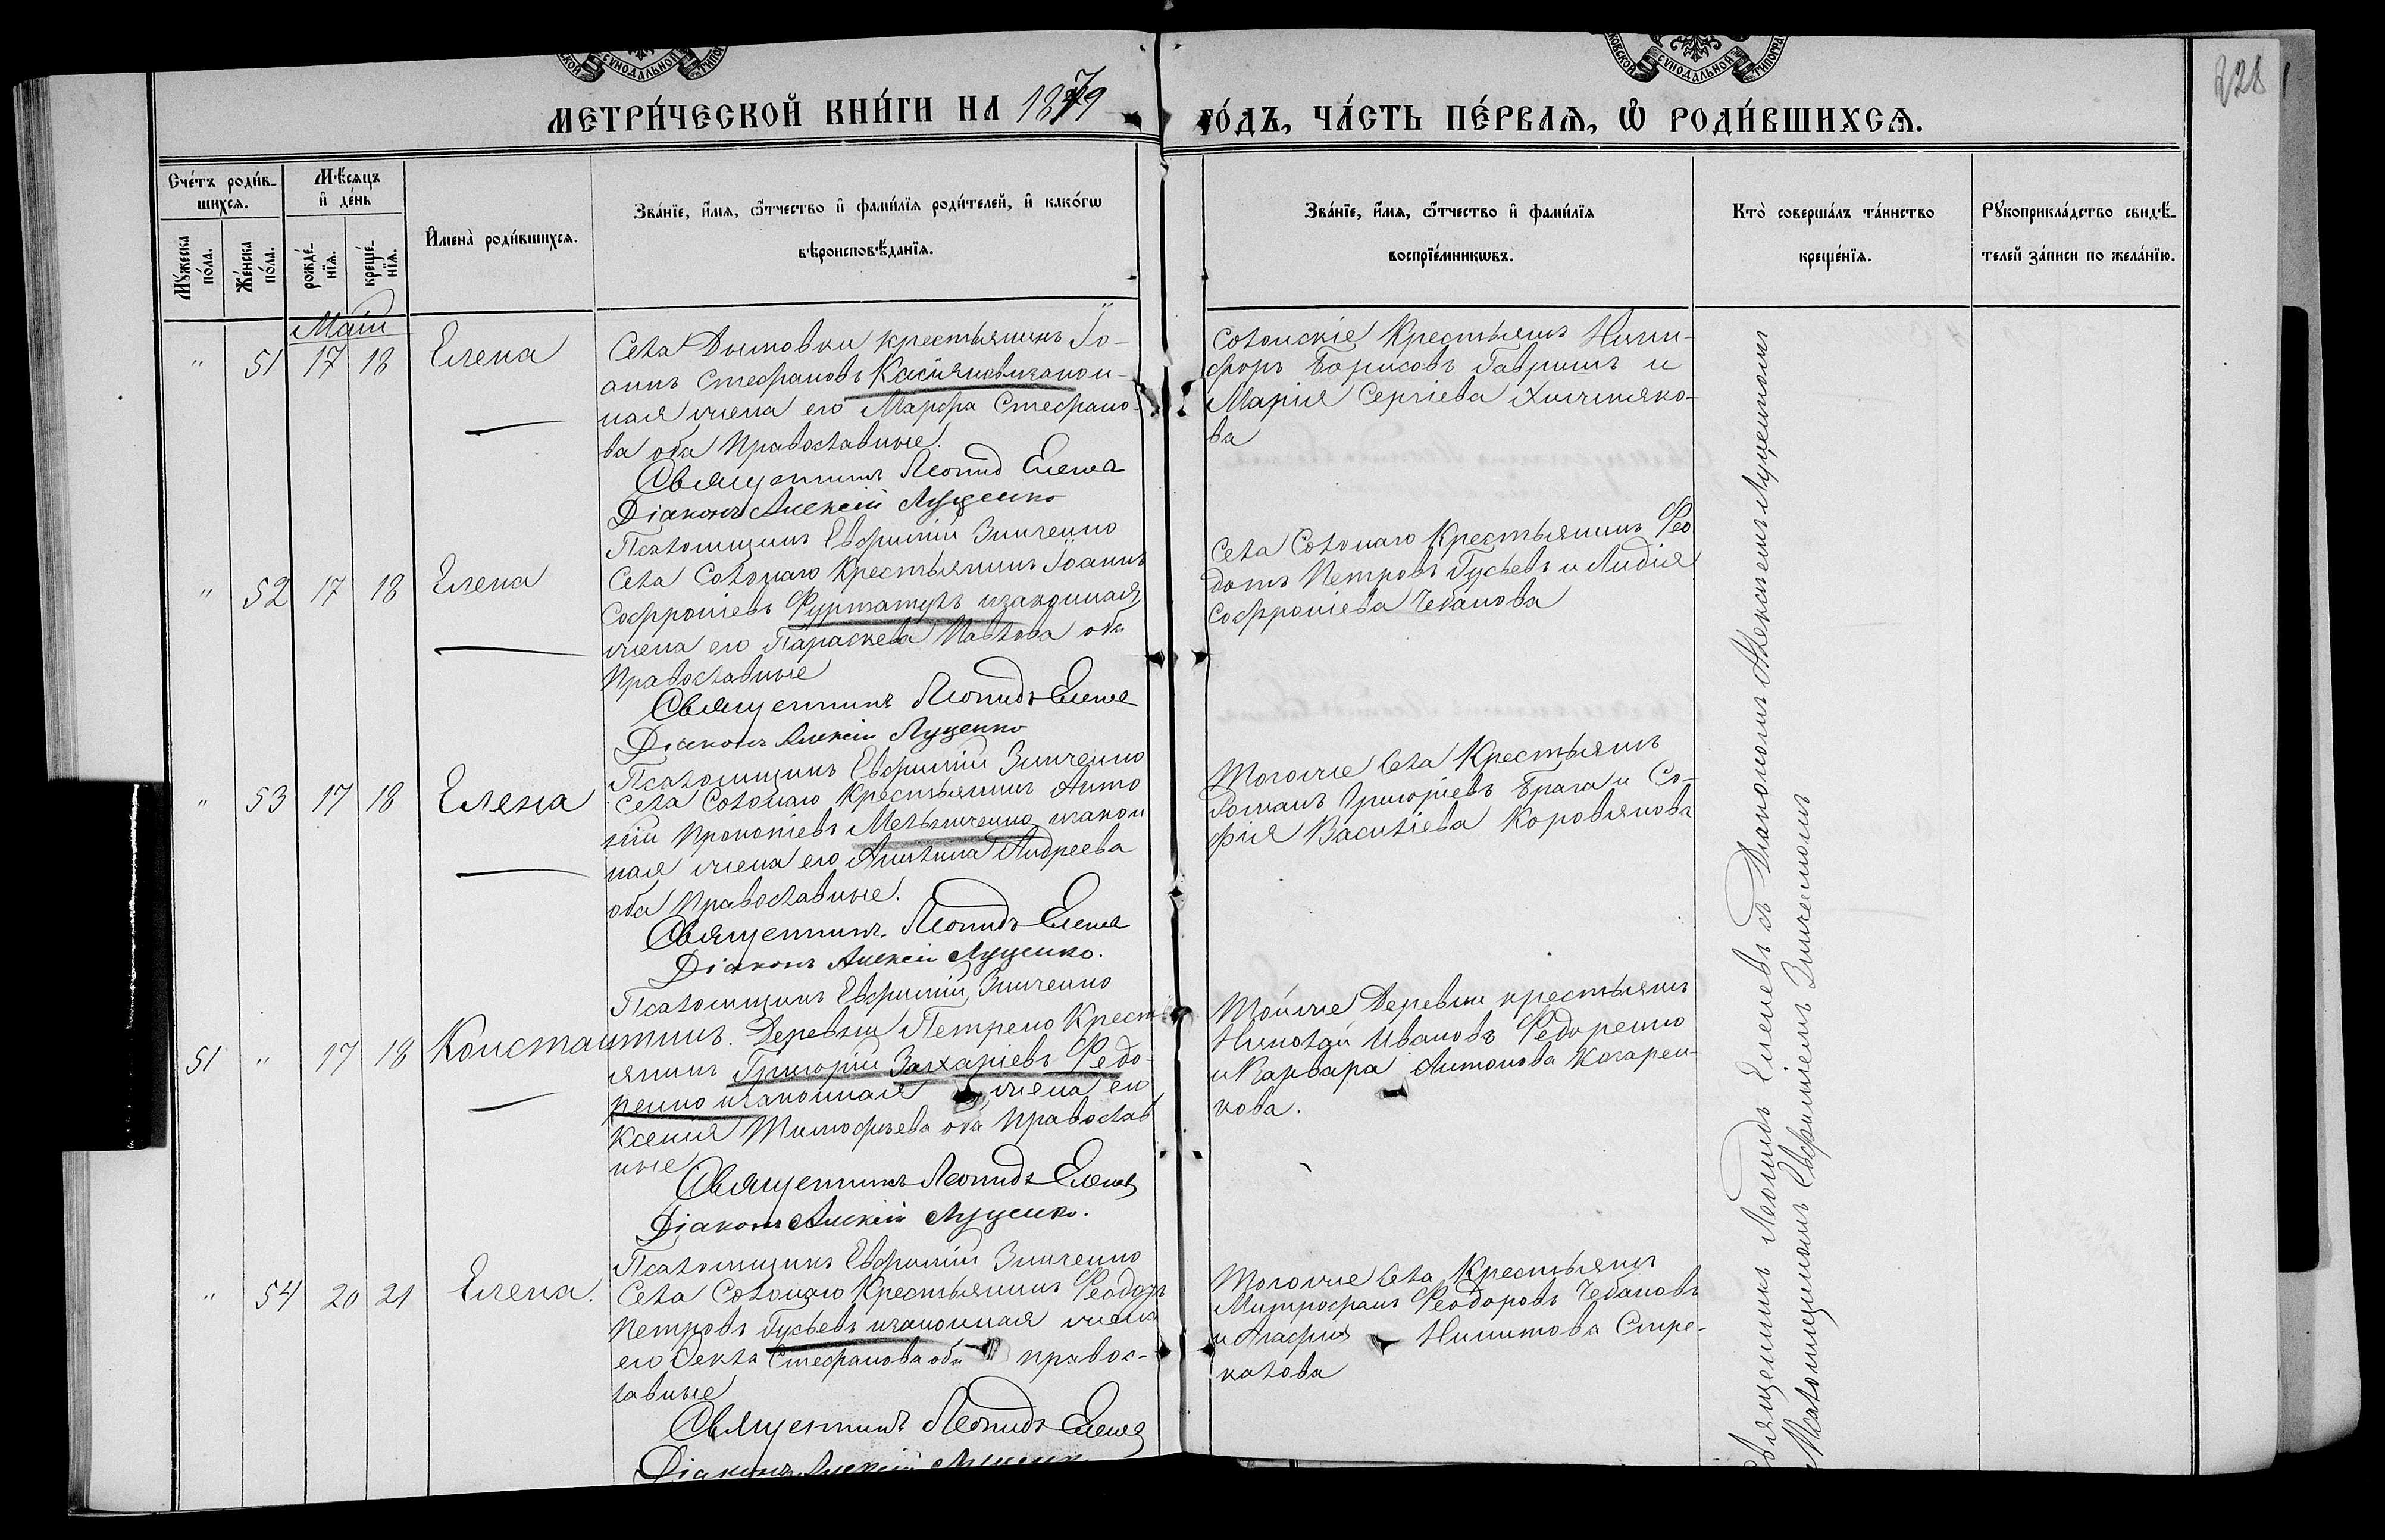 МЕТРИ́ЧЕСКОЙ КНИ́ГИ НА 1879 ГО́ДЪ, ЧА́СТЬ ПЕ́РВАѦ, Ѡ҆ РОДИ́ВШИХСѦ.
228
Сче́тъ роди́в-
шихсѧ.
Мꙋ́жеска по́ла.
Же́нска по́ла.
Мѣ́сѧцъ и҆ де́нь
рожде́-нїѧ.
креще́-нїѧ.
И҆мена̀ роди́вшихсѧ.
Зва́нїе, и҆́мѧ, ѻ҆́тчество и҆ фами́лїѧ роди́телей, и҆ како́гѡ
вѣроисповѣ́данїѧ.
Зва́нїе, и҆́мѧ, ѻ҆́тчество и҆ фами́лїѧ
воспрїе́мникѡвъ.
Кто̀ соверша́лъ та́инство
креще́нїѧ.
Рꙋкоприкла́дство свидѣ́-
телей за́писи по жела́нїю.
Маій
" 51 17 18 Елена
Села Дымовки крестьянинъ Іо-
аннъ Стефановъ Касіяновизакон-
ная жена его Марфа Стефано-
ва оба Православные.
Священникъ Леонид Еленев
Діаконъ Алексій Луценко
Псаломщикъ Евфимій Зинченко
Солонскіе Крестьянъ Ники-
форъ Борисовъ Гавришъ и
Марія Сергіева Хижняко-
ва
" 52 17 18 Елена
Села Солонаго Крестьянинъ Іоаннъ
Софроніевъ изаконная
жена его Параскева Павлова оба
Православные
Священникъ Леонидъ Еленев
Діаконъ Алексій Луценко
Псаломщикъ Евфимій Зинченко
Села Солонаго Крестьянинъ Фео
дотъ Петровъ Гусьевъ и Лидія
Софроніева Чебанова
" 53 17 18 Елена
Села Солонаго Крестьянинъ Анто
ній Прокопіевъ Мельниченко изакон
ная жена его Акилина Андреева
оба Православные.
Священникъ Леонидъ Еленев
Діаконъ Алексій Луценко.
Псаломщикъ Евфимій Зинченко
Тогоже Села Крестьянъ
Романъ Григоріевъ Брага и Со-
фія Василіева Коровянова
51 " 17 18 Константинъ.
Деревни Петрено Крест
янинъ Григорій Захаріевъ Федо-
ренко изаконная жена его
Ксенія Тимофѣева оба Православ
ные
Священникъ Леонидъ Еленев
Діаконъ Алексій Луценко.
Псаломщикъ Евфимій Зинченко
Тойже Деревни крестьянъ
Николай Ивановъ Федоренко
и Варвара Антонова Кочарен-
кова.
" 54 20 21 Елена.
Села Солонаго Крестьянинъ Феодотъ
Петровъ Гусьевъ изаконная жена
его Фекла Стефанова оба правос-
лавные
Священникъ Леонидъ Еленев
Діаконъ Алексій Луценко
Тогоже Села Крестьянъ
Митрофанъ Феодоровъ Чебановъ
и Агафія Никитова Стре-
калова
Священникъ Леонидъ Еленевъ съ Діакономъ Алексѣемъ Луценкомъ
Псаломщикомъ Евфиміемъ Зинченкомъ